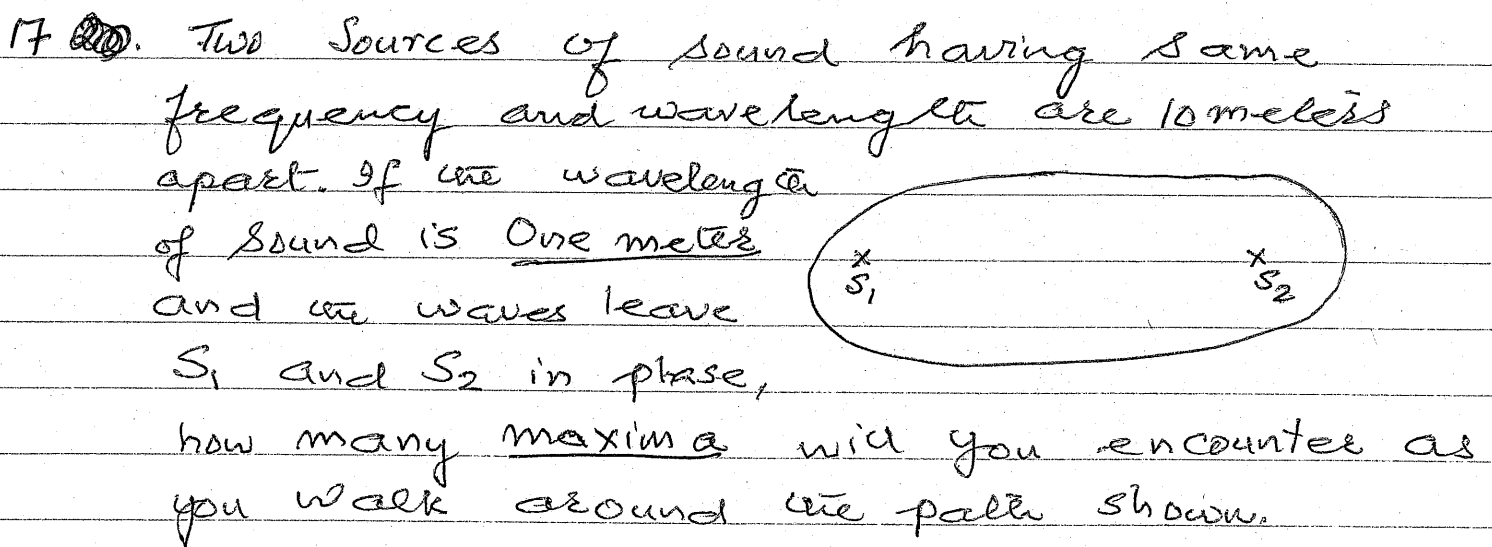 17. Two Sources of sound having same
frequency and wavelength are 10 meters
apart. If the wavelength
of sound is One meter
and the waves leave
S₁ and S₂ in phase,
how many maxima will you encounter as
you walk around the path shown.
S₁
S₂